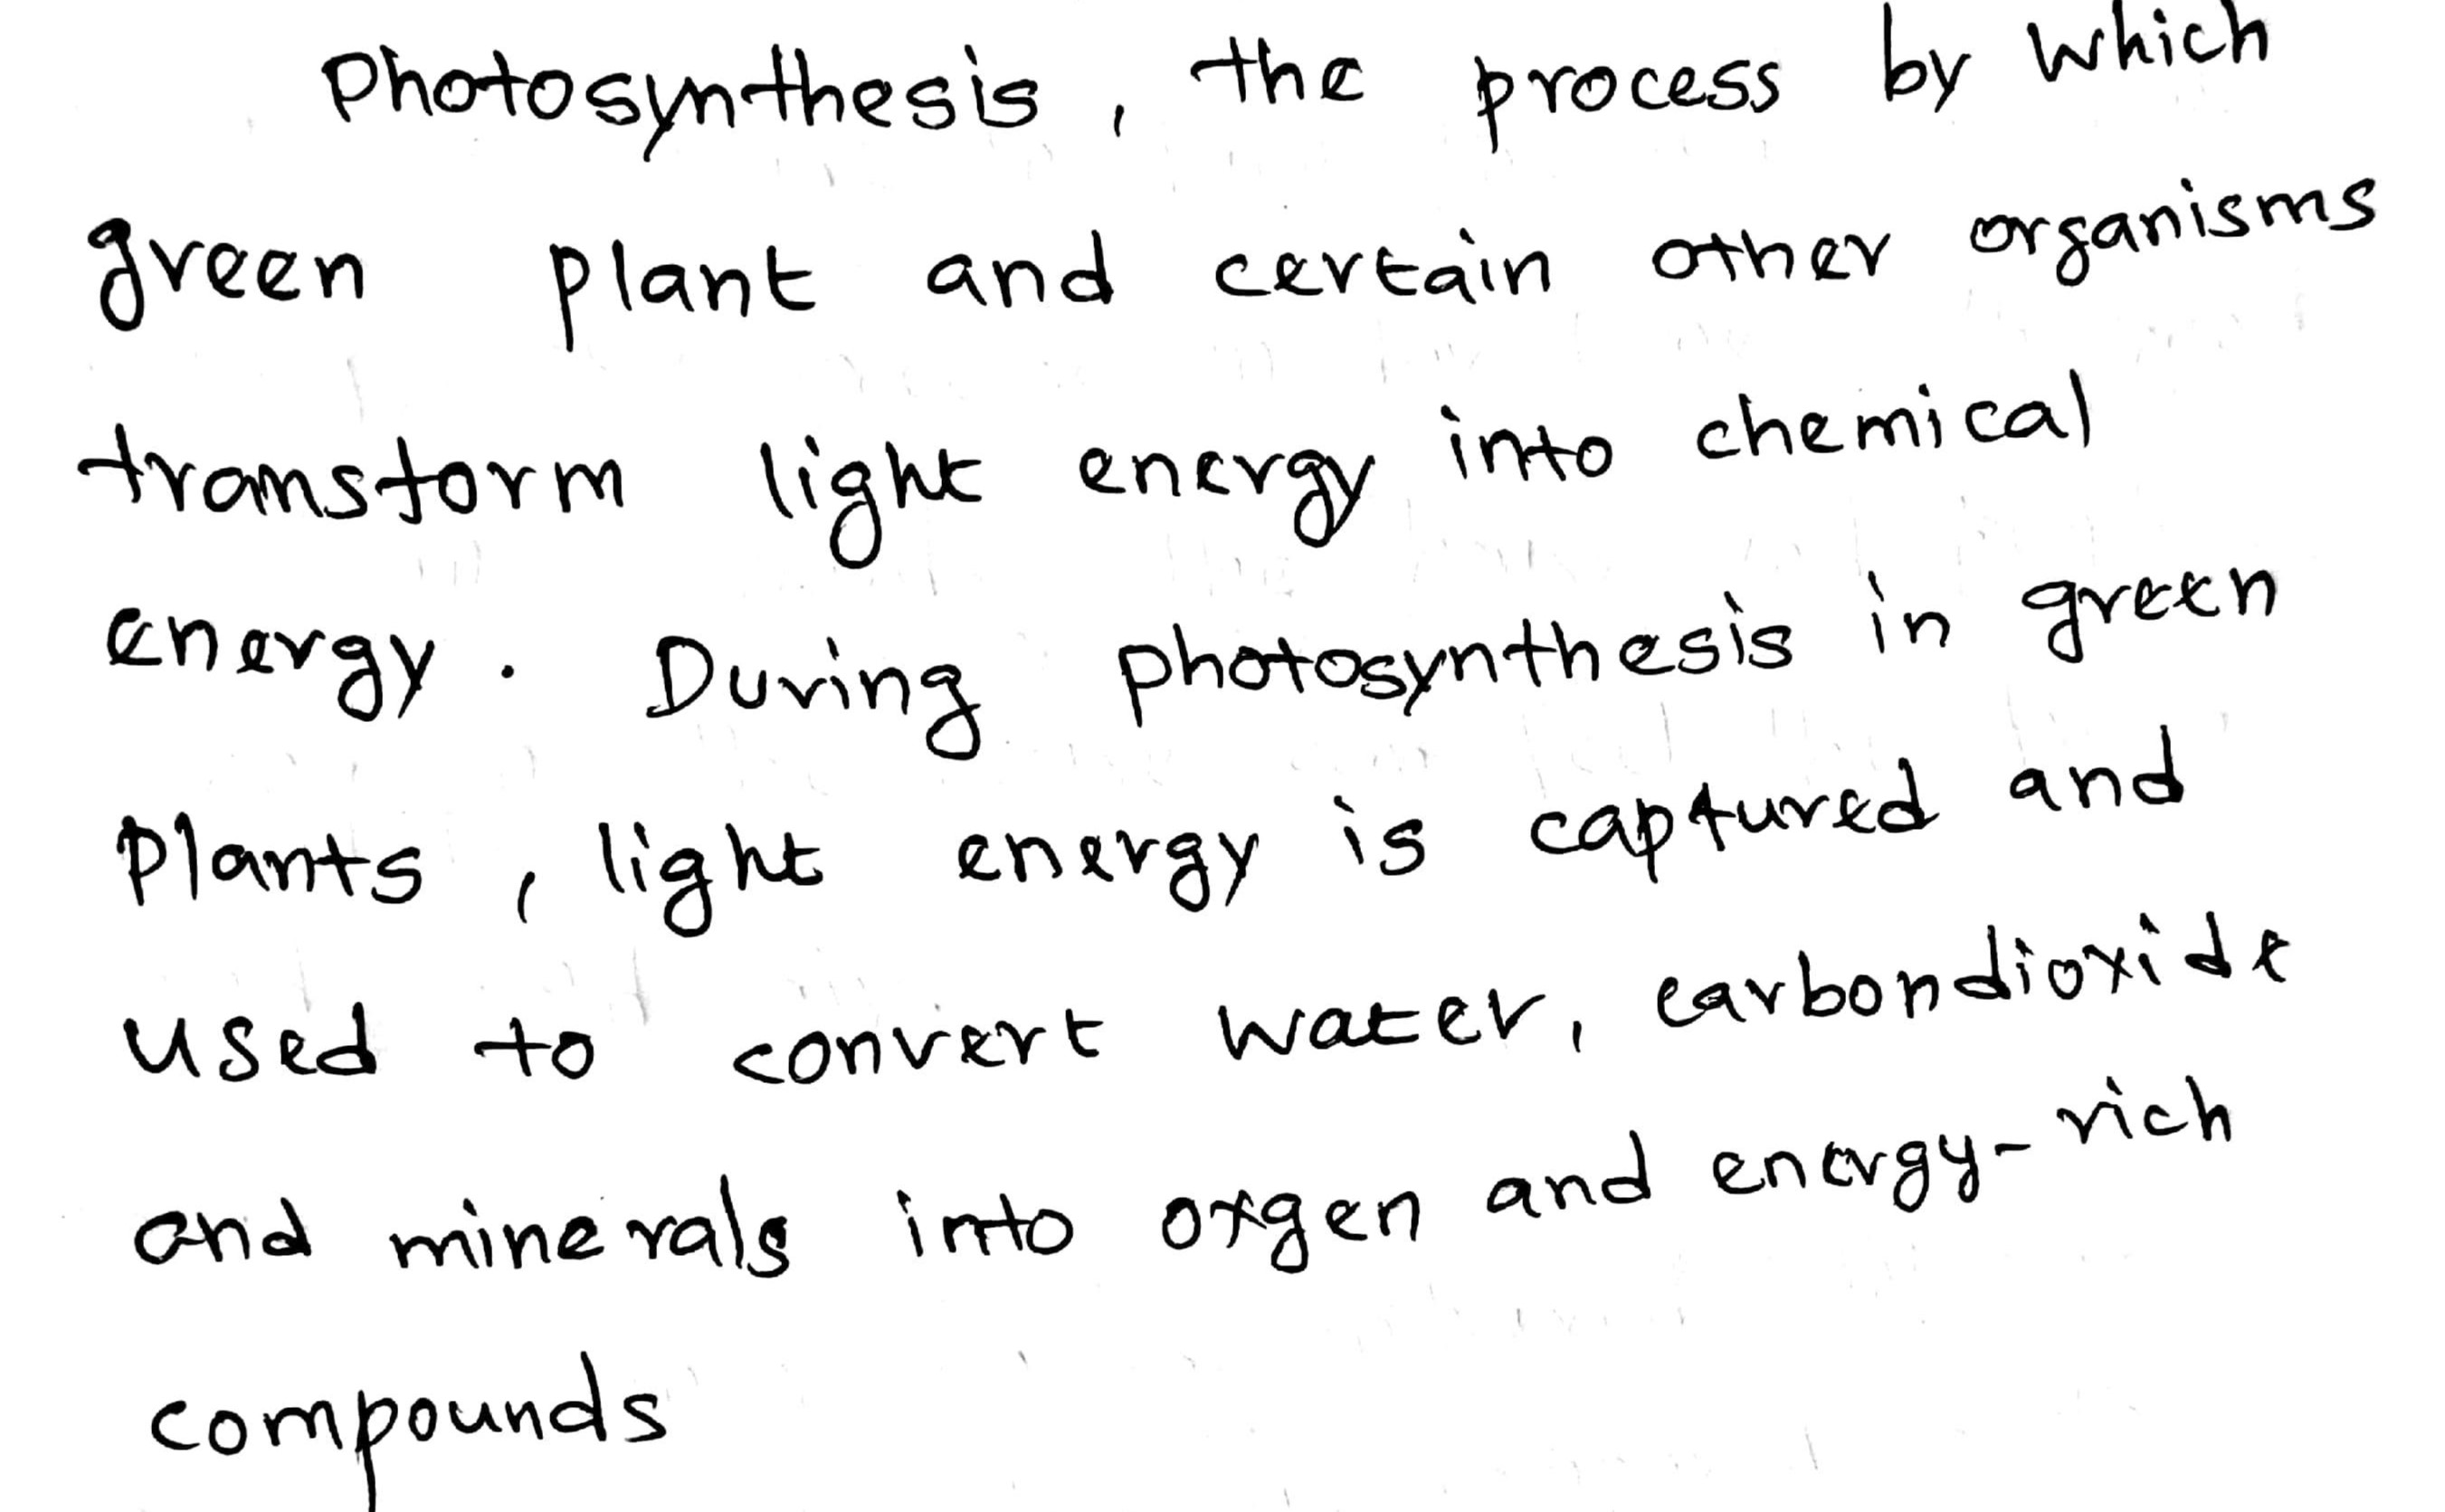 Photosynthesis, the process by which
green plant and certain other organisms
transform light energy into chemical
energy. During photosynthesis in green
Plants, light energy is captured and
used to convert water, carbondioxide
and minerals into oxgen and energy-rich
compounds